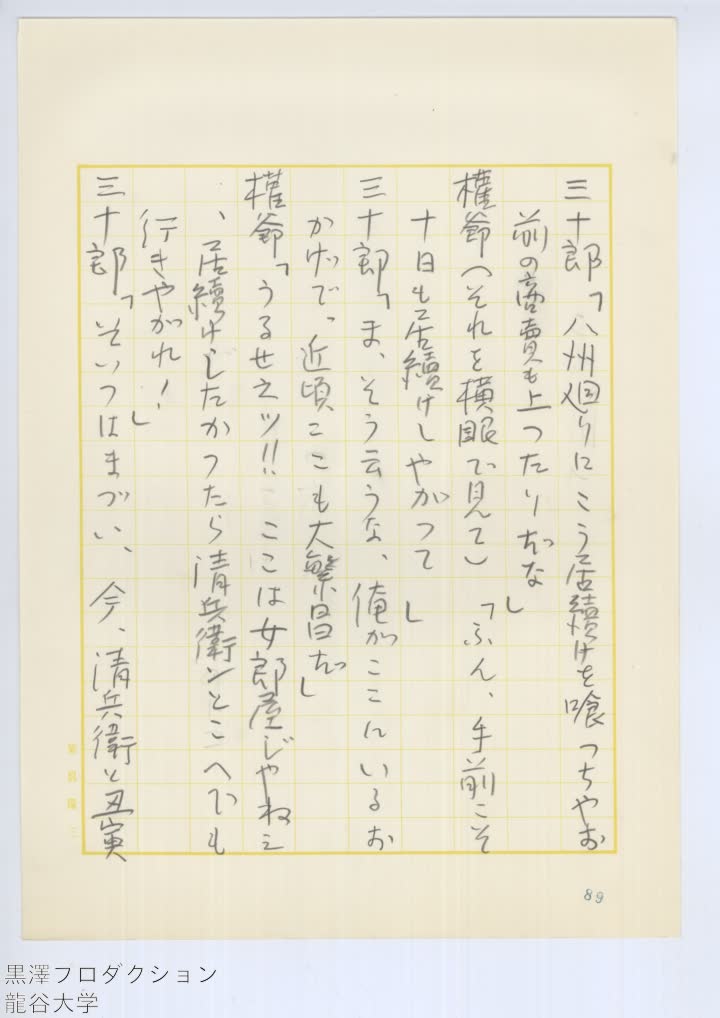 三十郎「八州廻りにこう居續けを喰つちやお
前の商賣も上つたりだな」
權爺（それを横眼で見て）「ふん、手前こそ
十日も居續けしやがつて」
三十郎「ま、そう云うな、俺がここにいるお
かげで、近頃ここも大繁昌だ」
權爺「うるせえッ!!ここは女郎屋じやねえ
、居續けしたかつたら清兵衛ンとこへでも
行きやがれ！」
三十郎「そいつはまづい、今、清兵衛と丑寅
89
黒澤プロダクション
龍谷大学